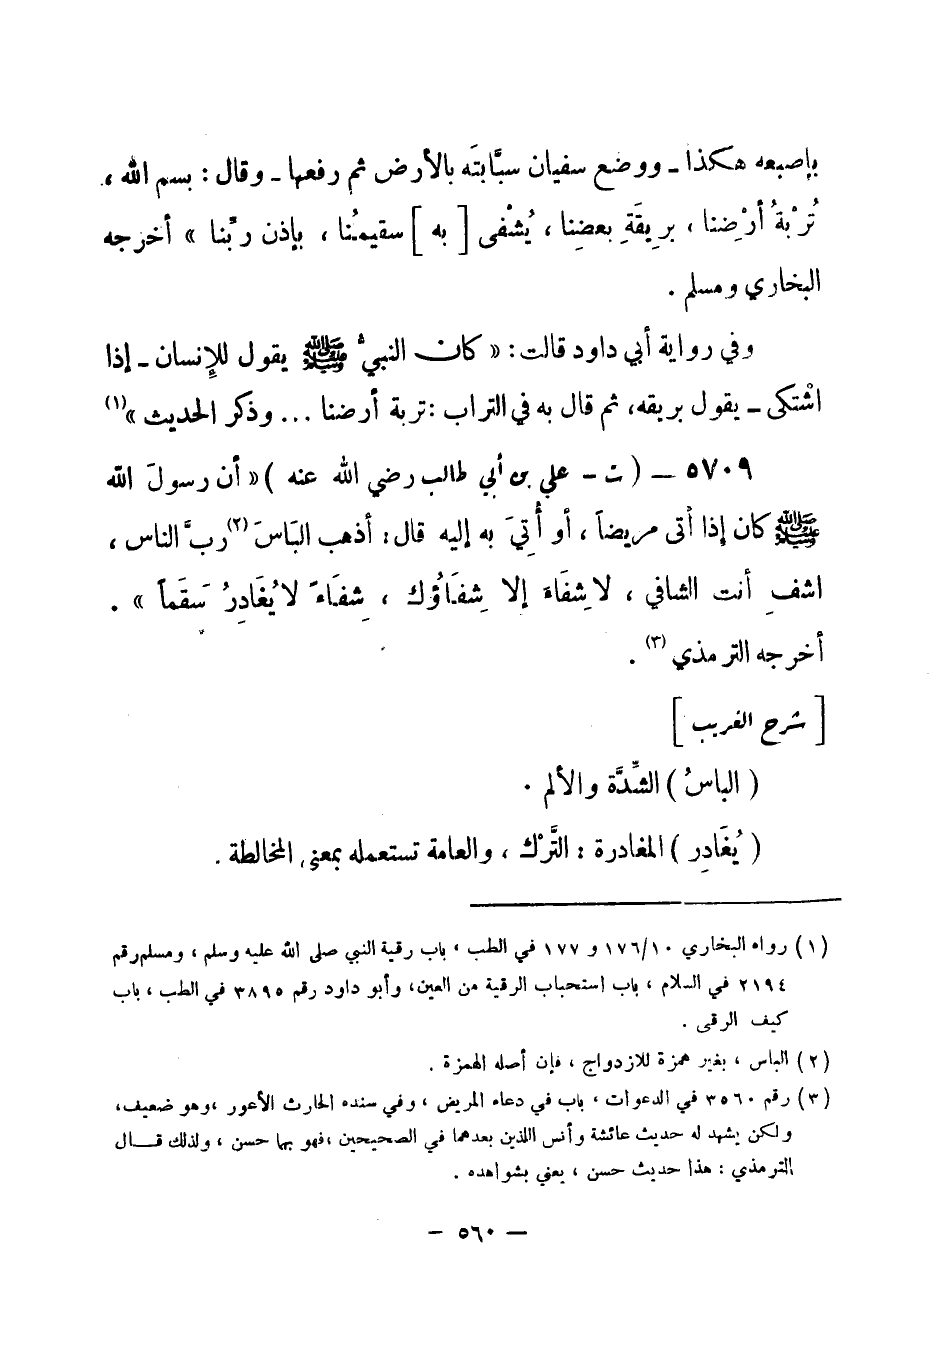 بإصبعه هكذا ـ ووضع سفيان سبَّابتَه بالأرض ثم رفعها ـ وقال : بسم الله ،
تُرْبةُ أرْضِنا ، بريقَةِ بعضِنا ، يُشْفى [ به ] سقيمُنا ، بإذن ربِّنا » أخرجه
البخاري ومسلم .
وفي رواية أبي داود قالت : « كان النبيُّ ﷺ يقول للإنسان ـ إذا
اشْتكى ـ يقول بريقه، ثم قال به في التراب : تربة أرضنا ... وذكر الحديث »(١)
٥٧٠٩ ـ ( ت ـ علي بن أبي طالب رضي الله عنه ) « أن رسولَ الله
ﷺ كان إذا أتى مريضاً ، أو أُتِيَ به إليه قال : أذهب البَاسَ(٢) ربَّ الناس ،
اشفِ أنت الشافي ، لا شِفَاءَ إلا شِفَاؤُك ، شِفَاءً لا يُغَادِرُ سَقَماً » .
أخرجه الترمذي (٣) .
[ شرح الغريب ]
( الباسُ ) الشِّدَّة والألم .
( يُغَادِر ) المغادرة : التَّرْك ، والعامة تستعمله بمعنى المخالطة .
(١) رواه البخاري ١٧٦/١٠ و ١٧٧ في الطب ، باب رقية النبي صلى الله عليه وسلم ، ومسلم رقم
٢١٩٤ في السلام ، باب إستحباب الرقية من العين، وأبو داود رقم ٣٨٩٥ في الطب ، باب
كيف الرقى .
(٢) الباس ، بغير همزة للازدواج ، فإن أصله الهمزة .
(٣) رقم ٣٥٦٠ في الدعوات ، باب في دعاء المريض ، وفي سنده الحارث الأعور ،وهو ضعيف،
ولكن يشهد له حديث عائشة وأنس اللذين بعدهما في الصحيحين ،فهو بها حسن ، ولذلك قـــال
الترمذي : هذا حديث حسن ، يعني بشواهده .
ـ ٥٦٠ ـ